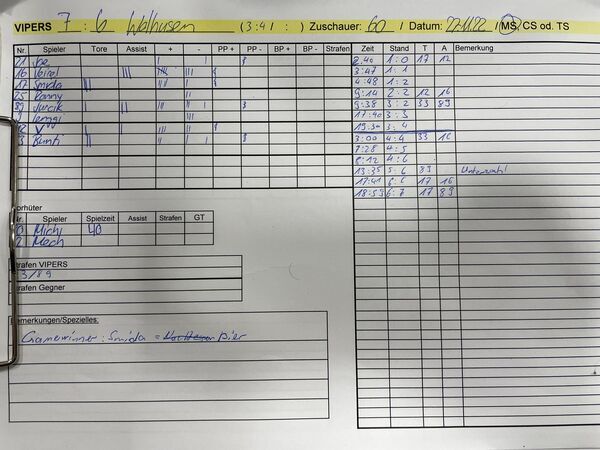 VIPERS 7 : 6 Wolhusen (3:4/ : ) Zuschauer: 60 / Datum: 22.11.22 / MS, CS od. TS
Nr. Spieler Tore Assist + - PP + PP - BP + BP - Strafen Zeit Stand T A Bemerkung
21 2:40 1:0 17 12
16 3:47 1:1
17 Smida 4:48 1:2
25 Ronny 9:14 2:2 12 16
89 Jurcik 9:38 3:2 33 89
9 17:40 3:3
12 19:34 3:4
3:00 4:4 33 16
7:28 4:5
8:12 4:6
13:35 5:6 89 Unterzahl
17:41 6:6 17 16
18:59 6:7 17 89
orhüter
Nr. Spieler Spielzeit Assist Strafen GT
Michi 40
2 Mech
trafen VIPERS
3/89
Strafen Gegner
Bemerkungen/Spezielles:
Gamewinner: Smida = Bier